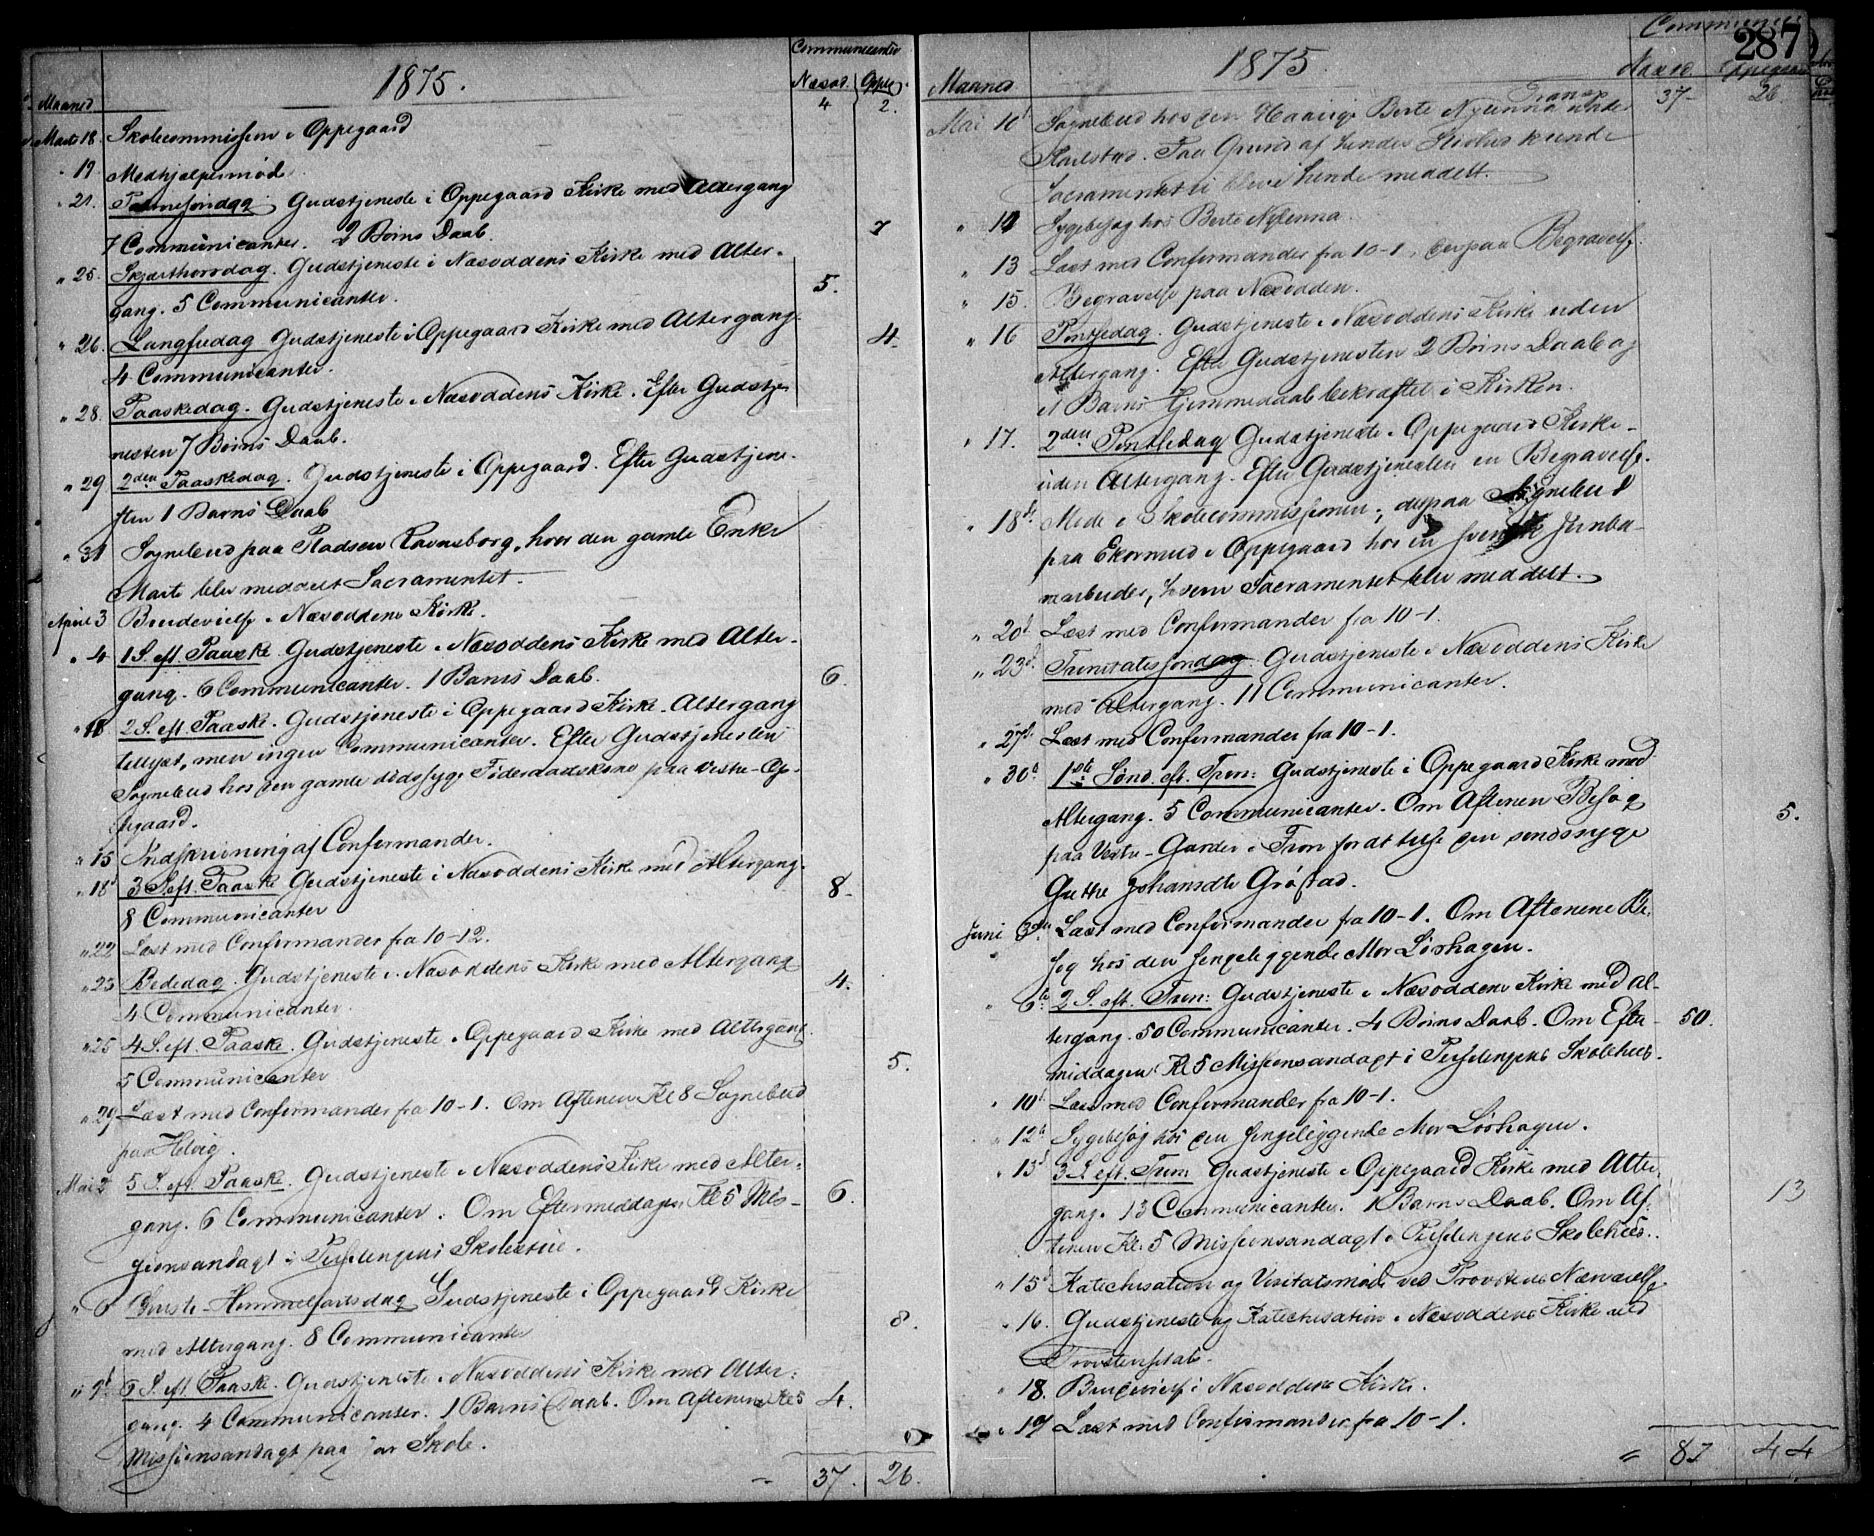 1875.
Communicanter
Maaned
Næsod. Oppeg.
4 2.
Marts 18. Skolecommission i Oppegaard
" 19 Medhjelpermøde.
" 21. Palmesøndag. Gudstjeneste i Oppegaard Kirke med Altergang
7 Communicanter. 2 Børns Daab. 7
" 25. Skjærthorsdag. Gudstjeneste i Næsoddens Kirke med Alter-
gang. 5 Communicanter. 5.
" 26. Langfredag Gudstjeneste i Oppegaard Kirke med Altergang. 4.
4 Communicanter.
" 28. Paaskedag. Gudstjeneste i Næsoddens Kirke. Efter Gudstje
nesten 7 Børns Daab.
" 29 2den Paaskedag. Gudstjeneste i Oppegaard. Efter Gudstjene-
sten 1 Barns Daab
" 31 Sognebud paa Pladsen Ravnsborg, hvor den gamle Enke
Marte blev meddelt Sacramentet.
April 3 Brudevielse i Næsoddens Kirke.
" 4 1 S. eft. Paaske. Gudstjeneste i Næsoddens Kirke med Alter-
gang. 6 Communicanter. 1 Barns Daab. 6.
" 11 2 S. eft. Paaske. Gudstjeneste i Oppegaard Kirke. Altergang
tillyst, men ingen Communicanter. Efter Gudstjenesten
Sognebud hos den gamle dødssyge Føderaadskone paa Vestre-Op-
pegaard.
" 15 Indskrivning af Confirmander.
" 18d 3 S. eft. Paaske Gudstjeneste i Næsoddens Kirke med Altergang.
8 Communicanter 8.
" 22 Læst med Confirmander fra 10-12.
" 23 Bededag. Gudstjeneste i Næsoddens Kirke med Altergang
4 Communicanter. 4.
" 25 4 S. eft. Paaske. Gudstjeneste i Oppegaard Kirke med Altergang.
5 Communicanter 5.
" 29 Læst med Confirmander fra 10-1. Om Aftenen Kl 8 Sognebud
paa Helvig.
Mai 2 5 S. eft. Paaske. Gudstjeneste i Næsoddens Kirke med Alter-
gang. 6 Communicanter. Om Eftermiddagen Kl 5 Mis- 6.
sionsandagt i Skolestue.
" 6 Christi-Himmelfartsdag Gudstjeneste i Oppegaard Kirke
med Altergang. 8 Communicanter 8.
" 9d 6 S. eft. Paaske. Gudstjeneste i Næsoddens Kirke med Alter-
gang. 4 Communicanter. 1 Barns Daab. Om Aftenen Kl 5 4.
Missionsandagt paa Skole.
37. 26.
287
1875.
Communic
Maaned
Næsod. Oppegaard
Transp 37- 26
Mai 10d Sognebud hos den Berte Nylenna under
Flailstad. Paa Grund af hendes kunde
Sacramentet ei blive hende meddelt.
" 12 Sygebesøg hos Berte Nylenna.
" 13 Læst med Confirmander fra 10-1, derpaa Begravelse.
" 15. Begravelse paa Næsodden.
" 16 Pintsedag. Gudstjeneste i Næsoddens Kirke uden
Altergang. Efter Gudstjenesten 2 Børns Daab og
et Barns Hjemmedaab bekræftet i Kirken.
" 17. 2den Pintsedag Gudstjeneste i Oppegaard Kirke-
uden Altergang. Efter Gudstjenesten en Begravelse.
" 18d. Møde i Skolecommissionen; derpaa Sognebud
paa Ekornrud i Oppegaard hos en svensk Jernba-
nearbeider, hvem Sacramentet blev meddelt.
" 20d. Læst med Confirmander fra 10-1.
" 23d. Trinitatissøndag. Gudstjeneste i Næsoddens Kirke
med Altergang. 11 Communicanter.
" 27d. Læst med Confirmander fra 10-1.
" 30d. 1ste Sønd. eft. Trin: Gudstjeneste i Oppegaard Kirke med
Altergang. 5 Communicanter. Om Aftenen Besøg 5.
paa Vestre-Garder i Fron for at tilse den sindssyge
Johansdtr Grøstad.
Juni 3die Læst med Confirmander fra 10-1. Om Aftenen Be-
søg hos den sengeliggende Mor Lörhagen.
" 6te. 2 S. eft. Trin: Gudstjeneste i Næsoddens Kirke med Al-
tergang. 50 Communicanter. 4 Børns Daab. Om Efter- 50.
middagen Kl 5 Missionsandagt i Skolehus.
" 10d. Læst med Confirmander fra 10-1.
" 12d Sygebesøg hos den sengeliggende Mor Lörhagen.
" 13d 3 S. eft. Trin: Gudstjeneste i Oppegaard Kirke med Alter
gang. 13 Communicanter. 1 Barns Daab. Om Af- 13
tenen Kl. 5 Missionsandagt i Skolehus.
" 15d Katechisation og Visitatsmøde ved Provstens Nærværelse.
" 16. Gudstjeneste og Katechisation i Næsoddens Kirke ved
Provstevisitats.
" 18. Brudevielse i Næsoddens Kirke.
" 19 Læst med Confirmander fra 10-1.
87 44